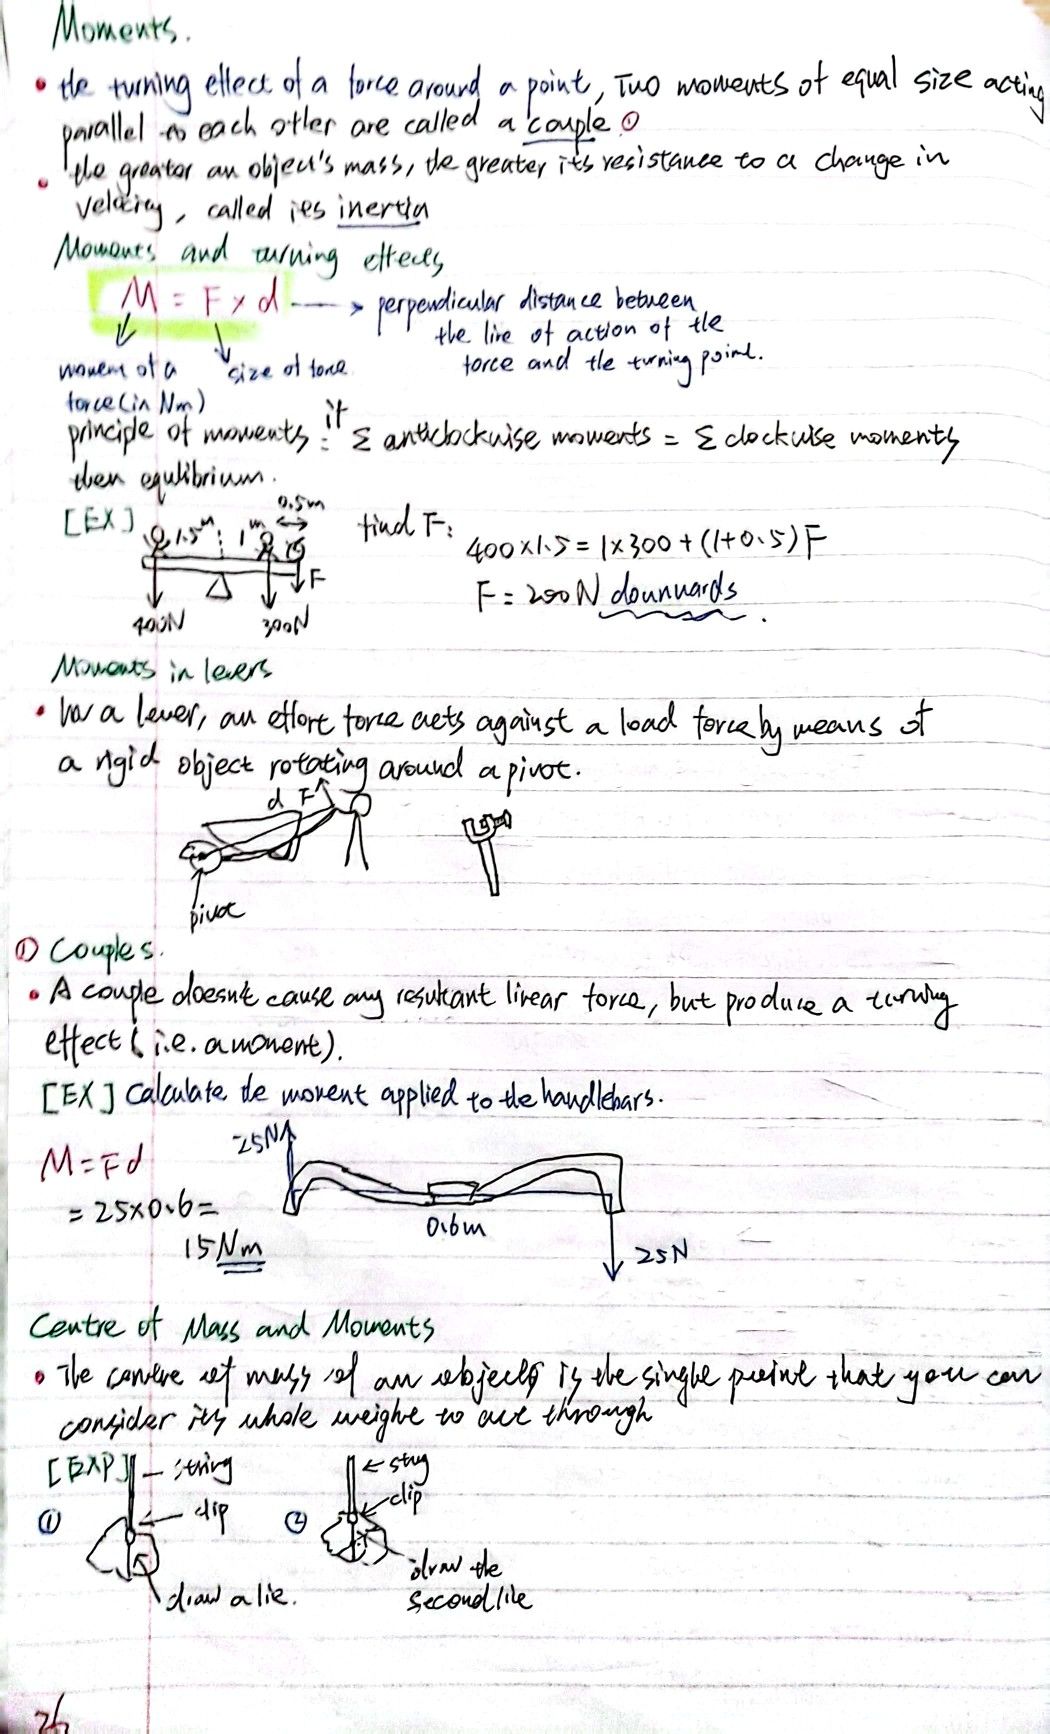 Moments.
• the turning effect of a force around a point, Two moments of equal size acting
parallel to each other are called a couple ①
• the greater an object's mass, the greater its resistance to a change in
velocity, called its inertia
Moments and turning effects
M = F x d → perpendicular distance between
the line of action of the
force and the turning point.
moment of a
force (in Nm)
size of force
principle of moments: if Σ anticlockwise moments = Σ clockwise moments
then equlibrium.
[EX] 1.5m 1m 0.5m
F
400N 300N
find F:
400x1.5 = 1x300 + (1+0.5)F
F = 200N downwards.
Moments in levers
• In a lever, an effort force acts against a load force by means of
a rigid object rotating around a pivot.
d F
pivot
① Couples.
• A couple doesn't cause any resultant linear force, but produce a turning
effect (i.e. a moment).
[EX] Calculate the moment applied to the handlebars.
M = Fd
= 25x0.6 =
15Nm
25N
0.6m
25N
Centre of Mass and Moments
• The centre of mass of an object is the single point that you can
consider its whole weight to act through
[EXP] string
① clip
draw a lie.
② string
clip
draw the
second lie